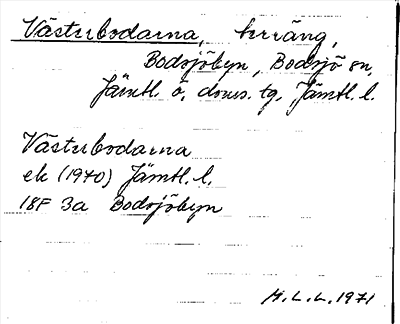 Västerbodarna, hrräng,
Bodsjöbyn, Bodsjö sn,
Jämtl. ö. doms. tg, Jämtl. l.
Västerbodarna
ek (1970) Jämtl. l.
18F 3a Bodsjöbyn
H.L.L. 1971